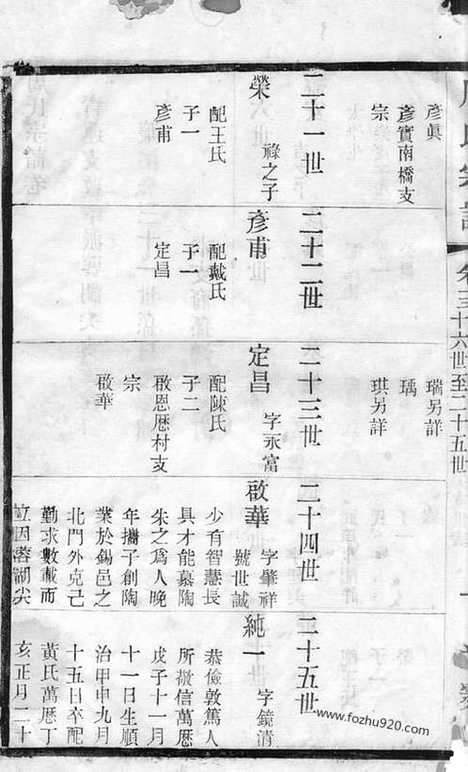 卷三十六世至二十五世
彥眞
彥實南橋支
宗
二十一世
榮 祿之子
配王氏
子一
彥甫
二十二世
彥甫
配戴氏
子一
定昌
瑞另詳
瑀
珙另詳
二十三世
定昌 字永富
配陳氏
子二
啟恩厯村支
宗
啟華
二十四世
啟華 字肇祥
號世誠
少有智慧長
具才能慕陶
朱之爲人晚
年攜子創陶
業於錫邑之
北門外克己
勤求數載而
立因蓉湖尖
二十五世
純一 字鏡清
恭儉敦篤人
所敬信萬厯
戊子十一月
十一日生順
治甲申九月
十五日卒配
黃氏萬厯丁
亥正月二十
www.fozhu920.com